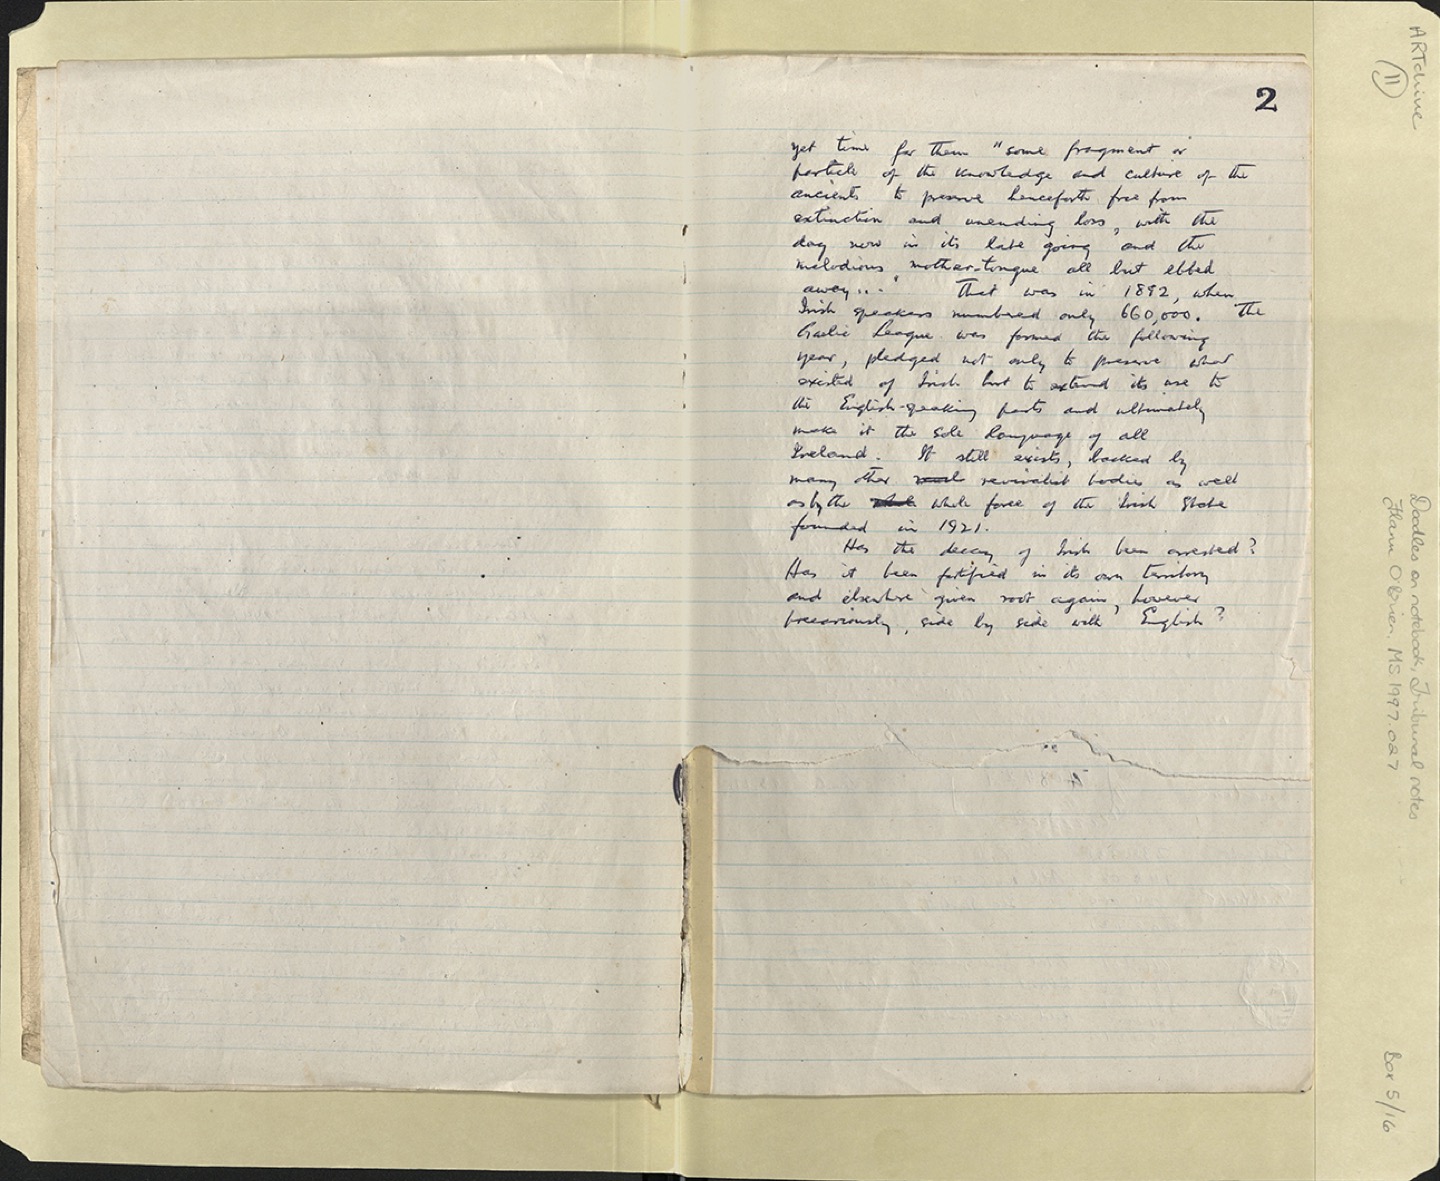 2
yet time for them "some fragment or
particle of the knowledge and culture of the
ancients to preserve henceforth free from
extinction and unending loss, with the
day now in its late going and the
melodious mother-tongue all but ebbed
away..." That was in 1892, when
Irish speakers numbered only 660,000. The
Gaelic League was formed the following
year, pledged not only to preserve what
existed of Irish but to extend its use to
the English-speaking parts and ultimately
make it the sole language of all
Ireland. It still exists, backed by
many other revivalist bodies as well
as by the whole force of the Irish State
founded in 1921.
Has the decay of Irish been arrested?
Has it been fortified in its own territory
and elsewhere given root again, however
precariously, side by side with English?
ARTchive
11
Doodles on notebook, Tribunal notes
Flann O'Brien. MS.1997.027
Box 5/16